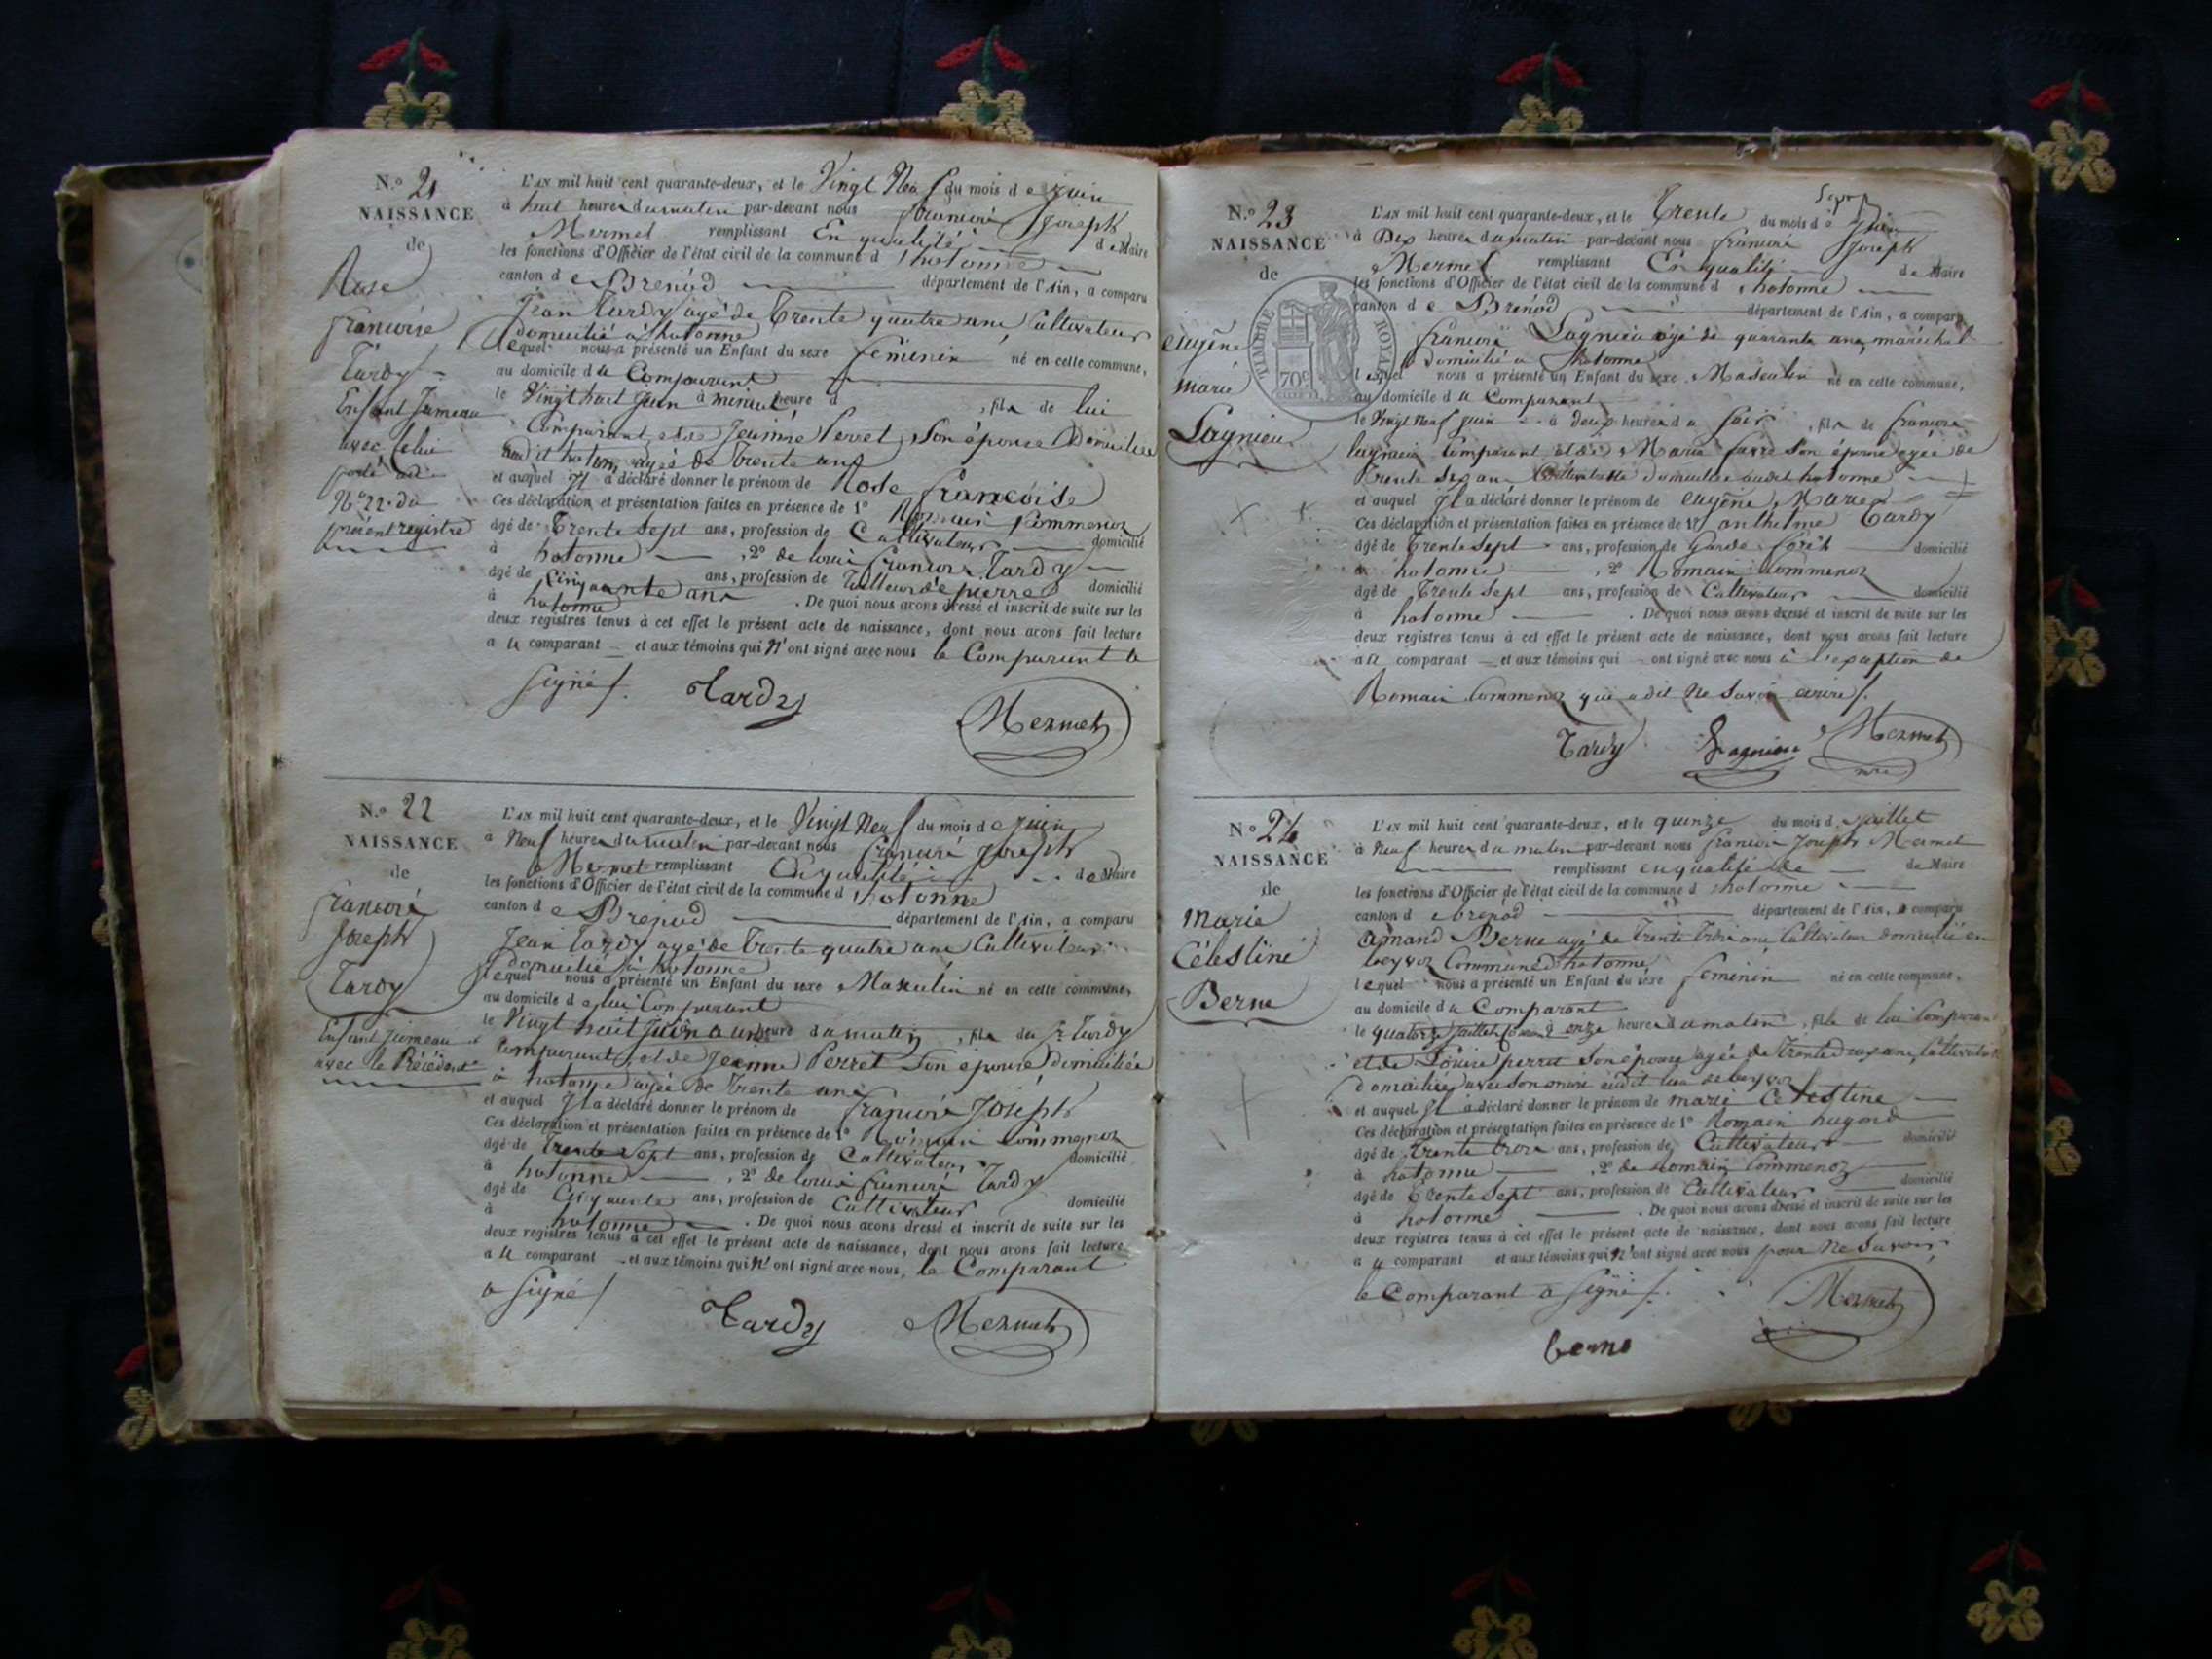 N.º 21
NAISSANCE
de
Rose
francoise
Tardy
Enfant Jumeau
avec Celui
porté au
Nº 22. du
présent registre
L'an mil huit cent quarante-deux, et le Vingt Neuf du mois de juin
à huit heures du matin par-devant nous francois Joseph
Mermet remplissant En qualité de Maire
les fonctions d'Officier de l'état civil de la commune d'hotonne
canton de Brenod département de l'Ain, a comparu
Jean Tardy agé de Trente quatre ans Cultivateur
domicilié a hotonne
lequel nous a présenté un Enfant du sexe féminin né en cette commune,
au domicile du Comparant
le Vingt huit Juin à minuit heure d , fils de lui
Comparant et de Jeanne Perret, Son épouse Domiciliée
audit hotonne agée de Trente ans
et auquel Il a déclaré donner le prénom de Rose francoise
Ces déclaration et présentation faites en présence de 1º Romain Commenoz
âgé de Trente Sept ans, profession de Cultivateur domicilié
à hotonne , 2º de louis francois Tardy
âgé de Cinquante ans ans, profession de Tailleur de pierre domicilié
à hotonne . De quoi nous avons dressé et inscrit de suite sur les
deux registres tenus à cet effet le présent acte de naissance, dont nous avons fait lecture
a u comparant et aux témoins qui N'ont signé avec nous le Comparant a
signé/. Tardy Mermet
N.º 22
NAISSANCE
de
francois
Joseph
Tardy
Enfant jumeau
avec le Précédent
L'an mil huit cent quarante-deux, et le Vingt Neuf du mois de juin
à Neuf heures du matin par-devant nous francois Joseph
Mermet remplissant En qualité de Maire
les fonctions d'Officier de l'état civil de la commune d'hotonne
canton de Brenod département de l'Ain, a comparu
Jean Tardy agé de Trente quatre ans Cultivateur
domicilié à hotonne
lequel nous a présenté un Enfant du sexe Masculin né en cette commune,
au domicile de lui Comparant
le Vingt huit juin a une heure du matin , fils du Sr Tardy
Comparant et de Jeanne Perret Son épouse domiciliée
à hotonne agée de Trente ans
et auquel Il a déclaré donner le prénom de francois Joseph
Ces déclaration et présentation faites en présence de 1º Romain Commenoz
âgé de Trente Sept ans, profession de Cultivateur domicilié
à hotonne , 2º de louis francois Tardy
âgé de Cinquante ans, profession de Cultivateur domicilié
à hotonne . De quoi nous avons dressé et inscrit de suite sur les
deux registres tenus à cet effet le présent acte de naissance, dont nous avons fait lecture
a u comparant et aux témoins qui N'ont signé avec nous, le Comparant
a signé/
Tardy Mermet
N.º 23
NAISSANCE
de
eugène
marie
Lagnieu
TIMBRE ROYAL
70c
L'an mil huit cent quarante-deux, et le Trente du mois de juin
à Dix heures du matin par-devant nous francois Joseph
Mermet remplissant En qualité de Maire
les fonctions d'Officier de l'état civil de la commune d'hotonne
canton de Brenod département de l'Ain, a comparu
francois Lagnieu agé de quarante ans, maréchal
domicilié a hotonne
lequel nous a présenté un Enfant du sexe Masculin né en cette commune,
au domicile du Comparant
le Vingt Neuf juin à deux heures du soir , fils de francois
lagnieu Comparant et de Marie favre Son épouse agée de
Trente six ans Cultivatrice domiciliée audit hotonne
et auquel Il a déclaré donner le prénom de eugène Marie
Ces déclaration et présentation faites en présence de 1º anthelme Tardy
âgé de Trente Sept ans, profession de Garde forêt domicilié
à hotonne , 2º Romain Commenoz
âgé de Trente Sept ans, profession de Cultivateur domicilié
à hotonne . De quoi nous avons dressé et inscrit de suite sur les
deux registres tenus à cet effet le présent acte de naissance, dont nous avons fait lecture
a u comparant et aux témoins qui ont signé avec nous à l'exception de
Romain Commenoz qui a dit Ne Savoir écrire/.
Tardy Lagnieu Mermet
N.º 24
NAISSANCE
de
marie
Célestine
Berne
L'an mil huit cent quarante-deux, et le quinze du mois de juillet
à Neuf heures du matin par-devant nous francois Joseph Mermet
remplissant en qualité de de Maire
les fonctions d'Officier de l'état civil de la commune d'hotonne
canton de brenod département de l'Ain, a comparu
amand Berne agé de Trente Trois ans Cultivateur domicilié en
Commune d'hotonne
lequel nous a présenté un Enfant du sexe féminin né en cette commune,
au domicile du Comparant
le quatorze juillet à onze heures du matin , fille de lui Comparant
et de Louise perret Son épouse agée de Trente deux ans, Cultivatrice
domiciliée avec Son audit lieu de
et auquel Il a déclaré donner le prénom de marie Celestine
Ces déclaration et présentation faites en présence de 1º Romain hugond
âgé de Trente trois ans, profession de Cultivateur domicilié
à hotonne , 2º de Romain Commenoz
âgé de Trente Sept ans, profession de Cultivateur domicilié
à hotonne . De quoi nous avons dressé et inscrit de suite sur les
deux registres tenus à cet effet le présent acte de naissance, dont nous avons fait lecture
a u comparant et aux témoins qui N'ont signé avec nous pour Ne Savoir,
le Comparant a signé/.
berne Mermet